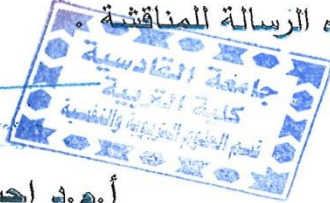 ه الرسالة للمناقشة .
جامعة القادسية
كلية التربية
قسم العلوم التربوية والنفسية
أ.م.د احمد